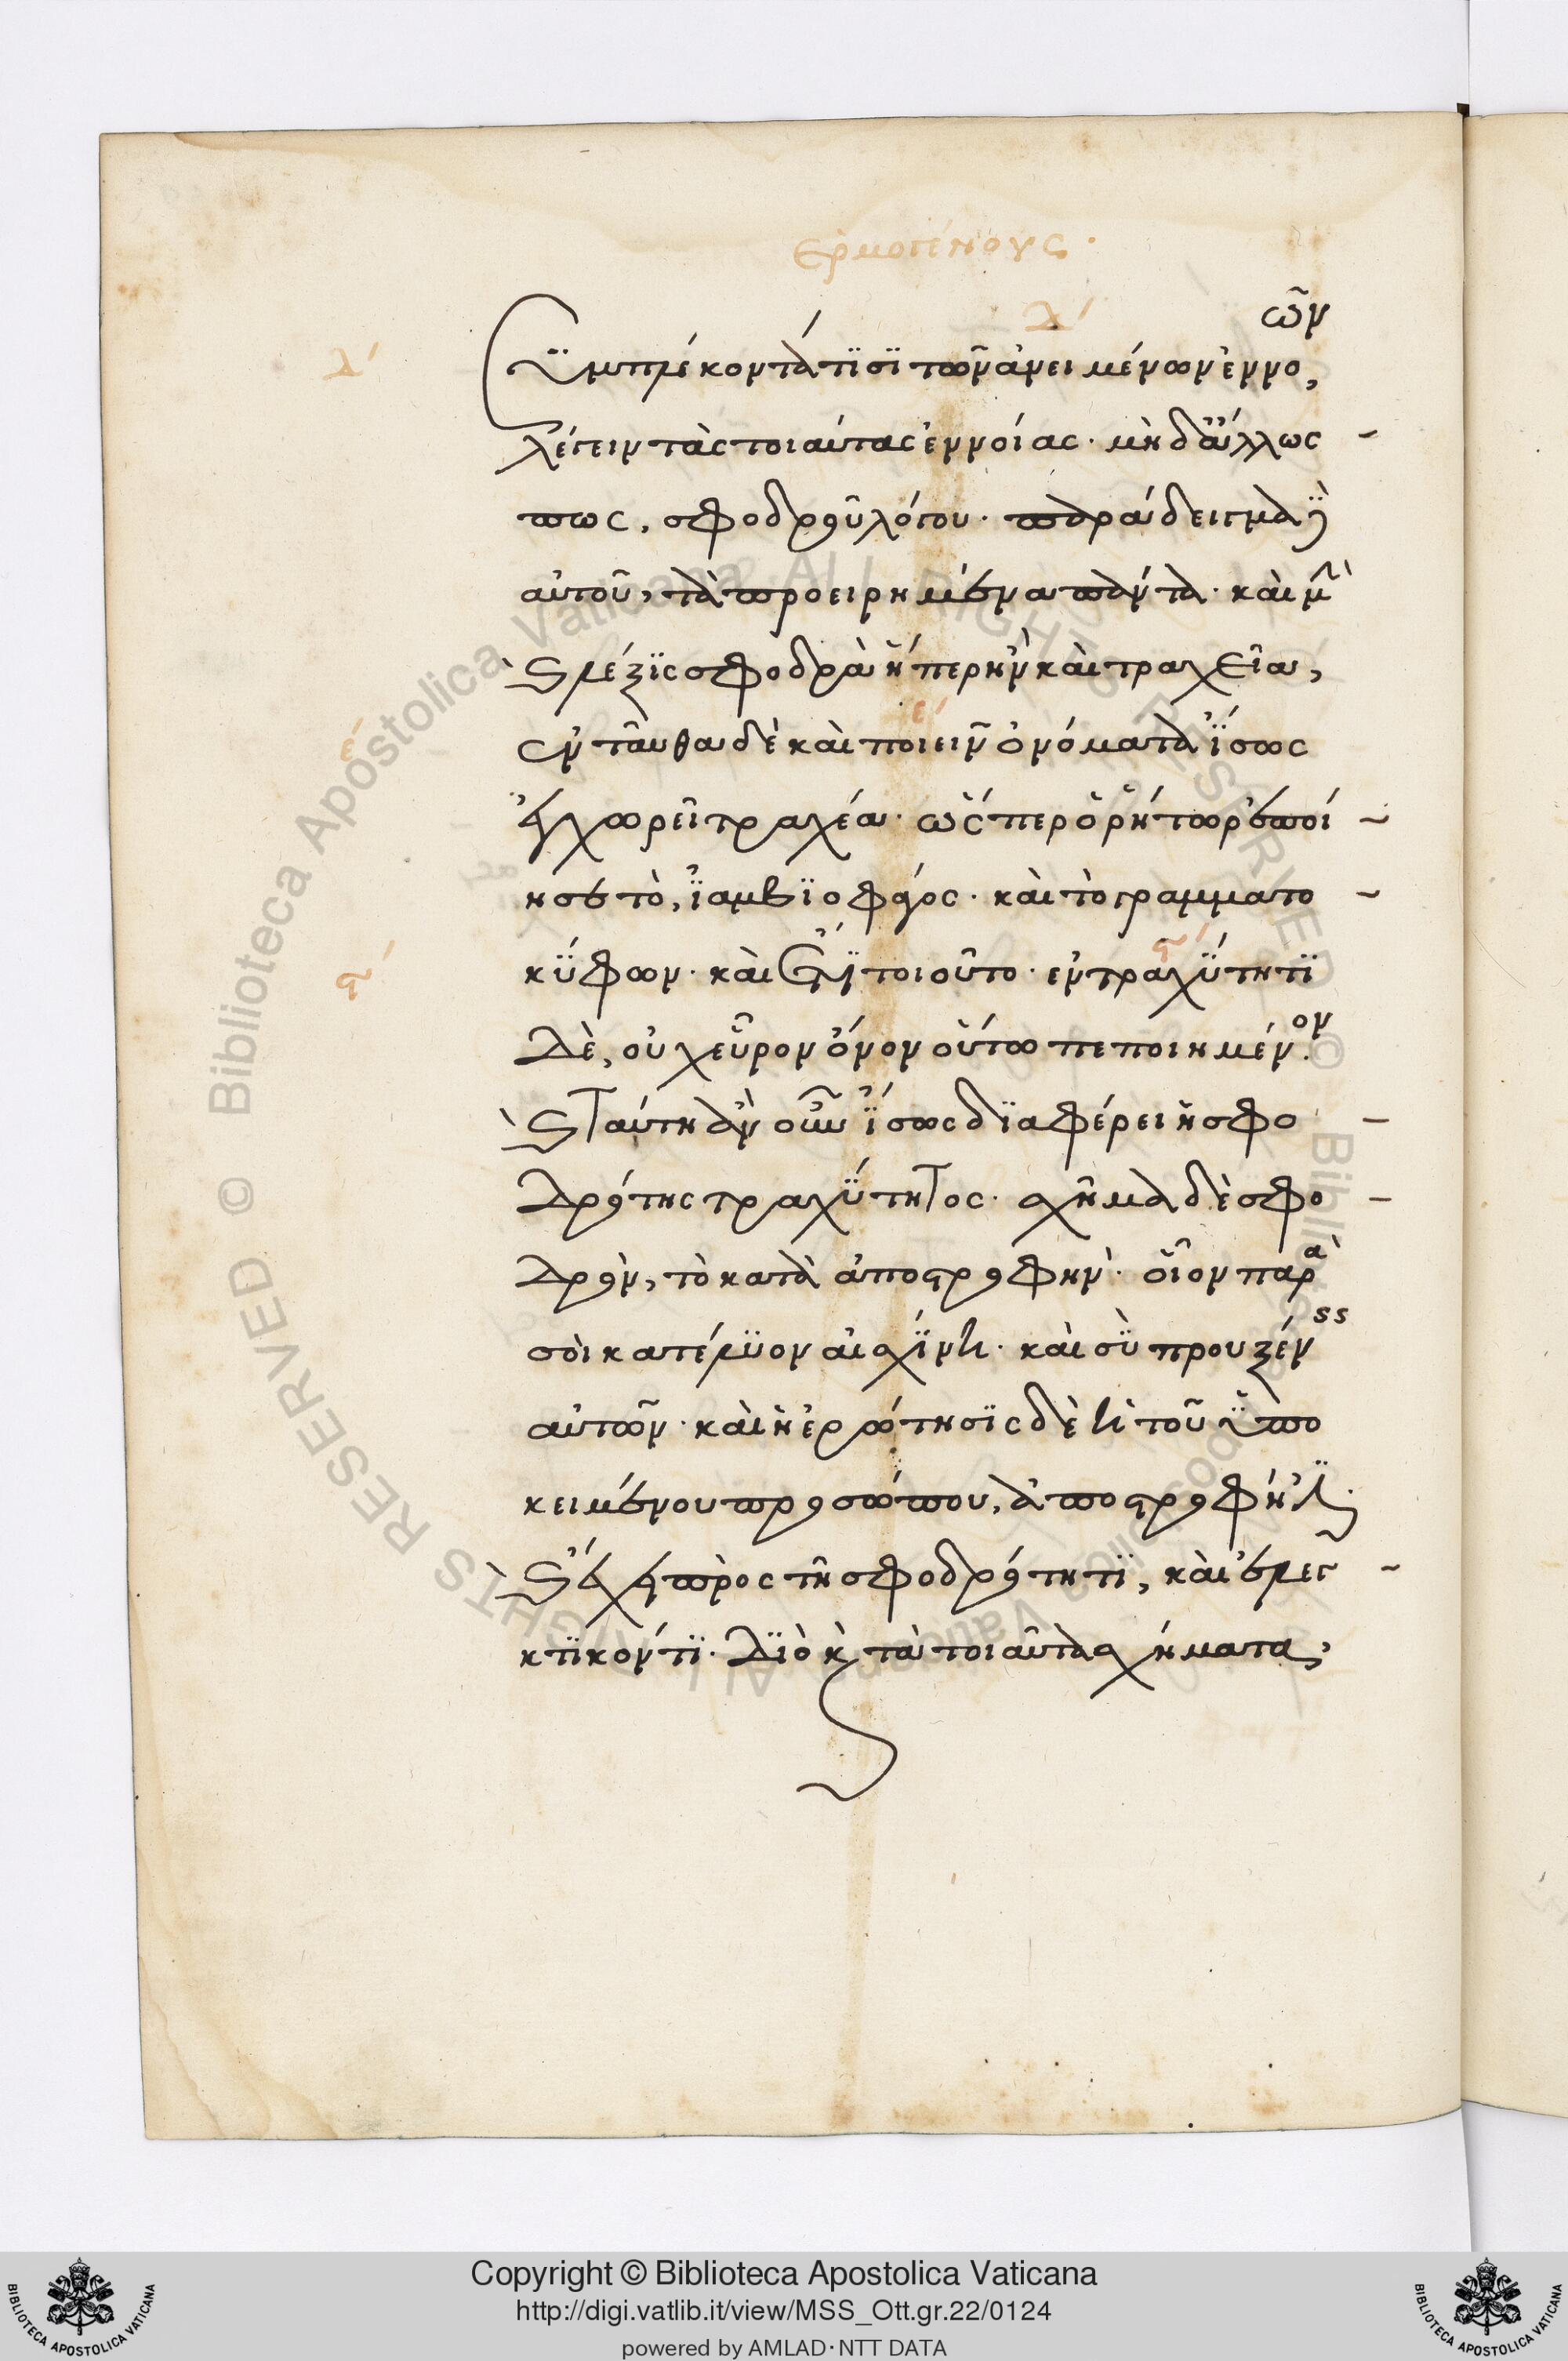 Ἑρμογένους.
δ´
δ´
συμπλέκοντά τισι τῶν ἀνειμένων ἐννοιῶν,
λέγειν τὰς τοιαύτας ἐννοίας. μὴ δ' ἄλλως
πως, σφοδροῦ λόγου. παράδειγμα
αὐτοῦ, τὰ προειρημένα πάντα. καὶ μὴν
λέξις σφοδρὰ ἥπερ ἦν καὶ τραχεῖα,
ἐνταῦθα δὲ καὶ ποιεῖν ὀνόματα ἴσως
ε´
ε´
ἐγχωρεῖ τραχέα. ὥσπερ ὁ ῥήτωρ ἐποί
ησε τὸ, ἰαμβιοφάγος. καὶ τὸ γραμματο
κύφων. καὶ εἴ τι τοιοῦτο. ἐν τραχύτητι
ϛ´
ϛ´
δὲ, οὐχ εὗρον ὄνομα οὕτω πεποιημένον.
ταύτῃ ἂν οὖν ἴσως διαφέρει ἡ σφο
δρότης τραχύτητος. σχῆμα δὲ σφο
δρὸν, τὸ κατὰ ἀποστροφὴν. οἷον παρὰ
σοὶ κατέλυον αἰσχίνη. καὶ σὺ προυξένεις
αὐτῶν. καὶ ἡ ἐρώτησις δὲ ἡ τοῦ ὑπο
κειμένου προσώπου, ἀποστροφή
ἔχει πρὸς τῇ σφοδρότητι, καὶ ἐλεγ
κτικόν τι. διὸ καὶ τὰ τοιαῦτα σχήματα,
Copyright © Biblioteca Apostolica Vaticana
http://digi.vatlib.it/view/MSS_Ott.gr.22/0124
powered by AMLAD·NTT DATA